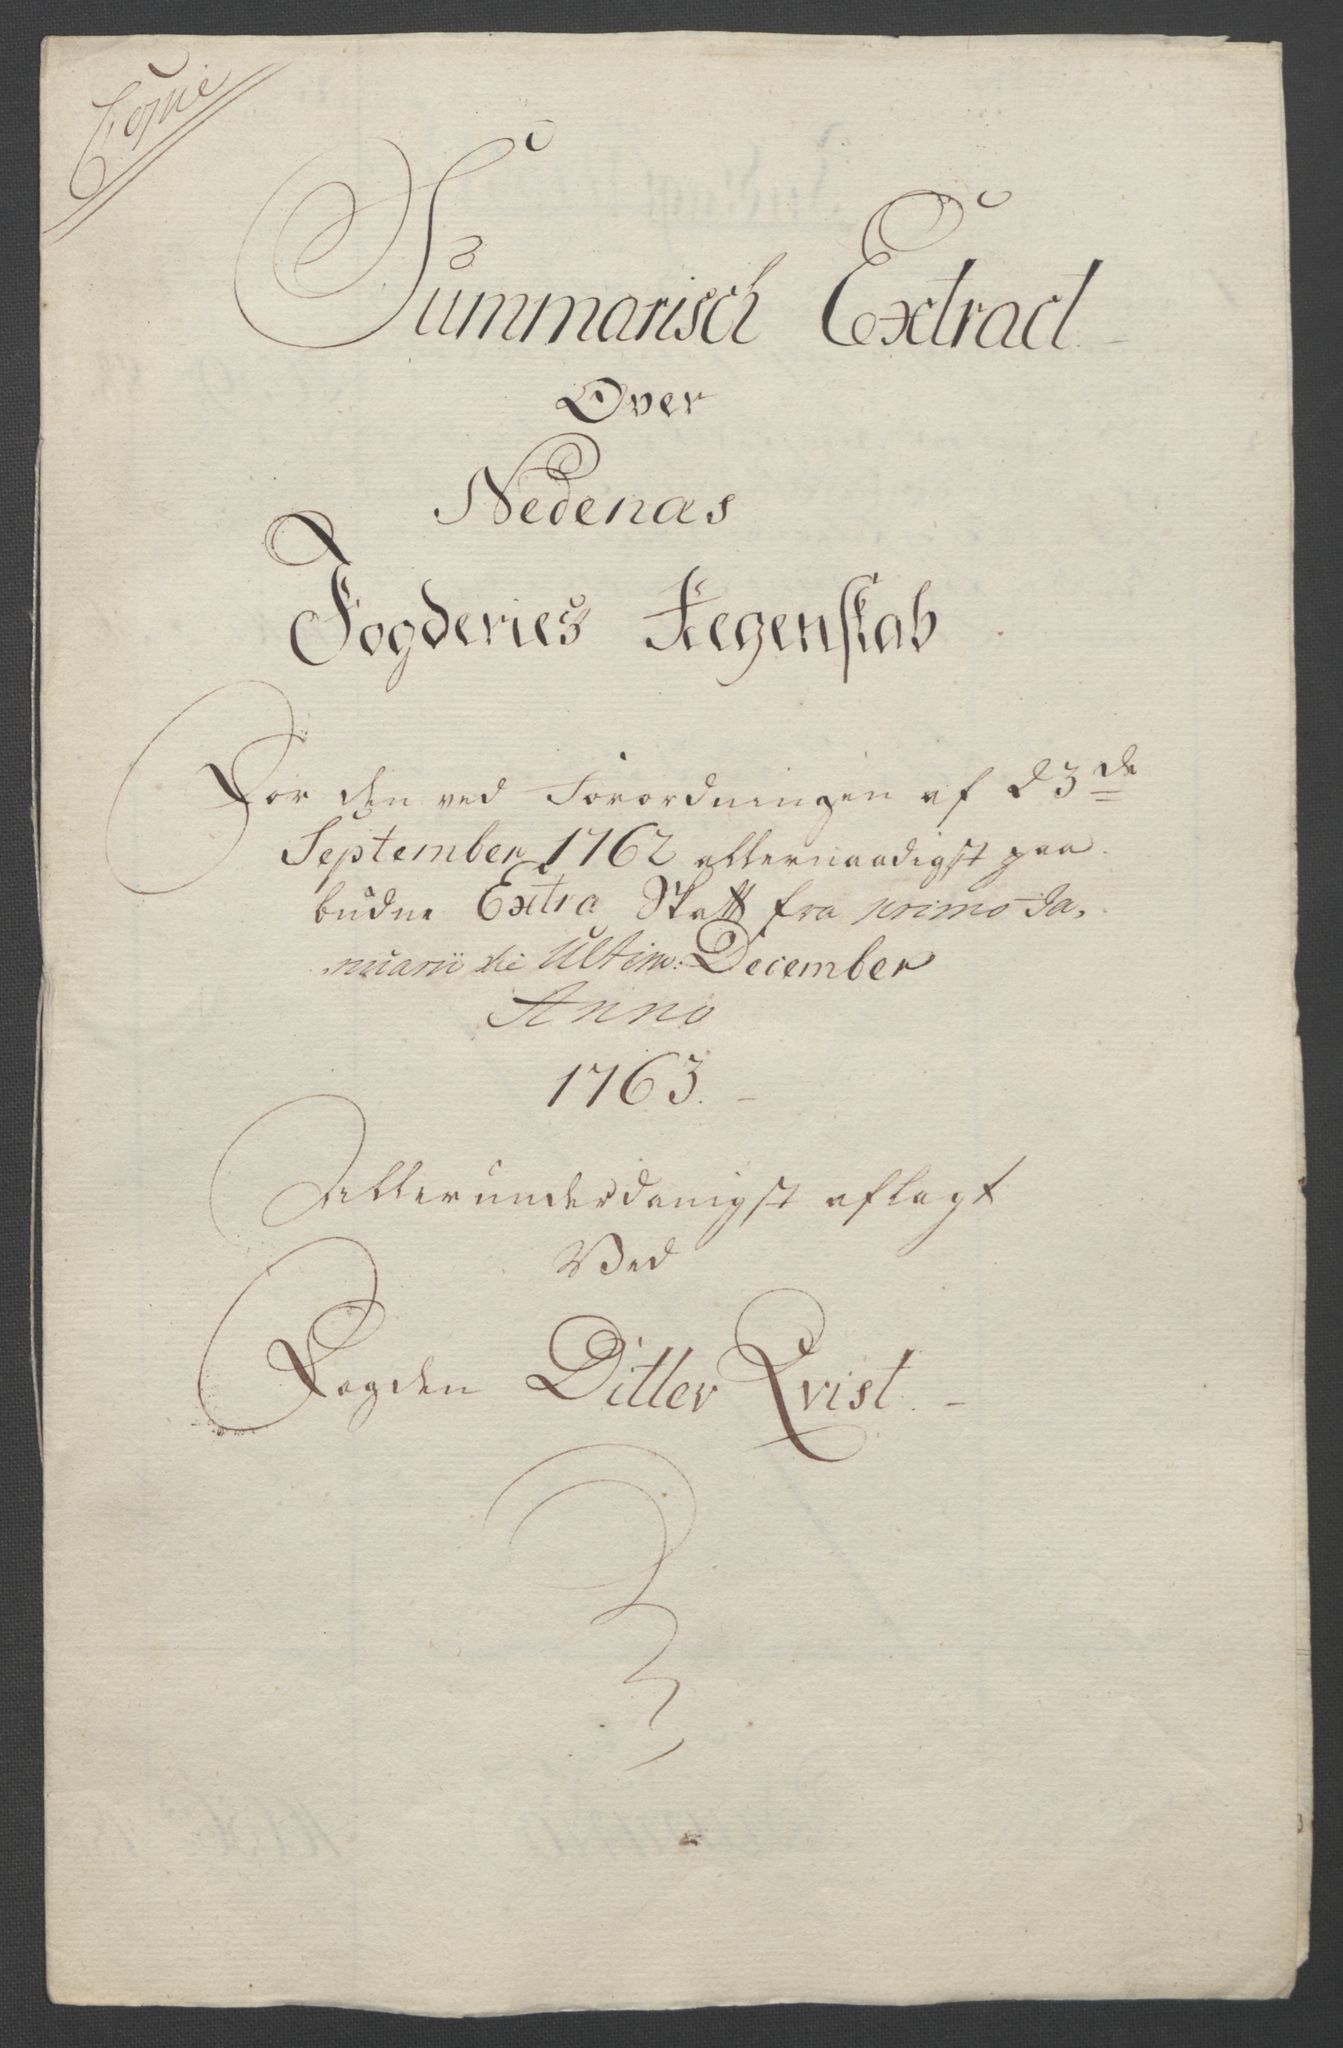 Copie
Summarisch Extract
Over
Nedenæs
Fogderies Regenskab
For den ved Forordningen af 23de
September 1762 allernaadigst paa
budne Extra Skatt fra primo Ja,
nuarii til Ultim: December
Anno
1763.
Allerunderdanigst aflagt
Ved
Fogden Ditlev Qvist.